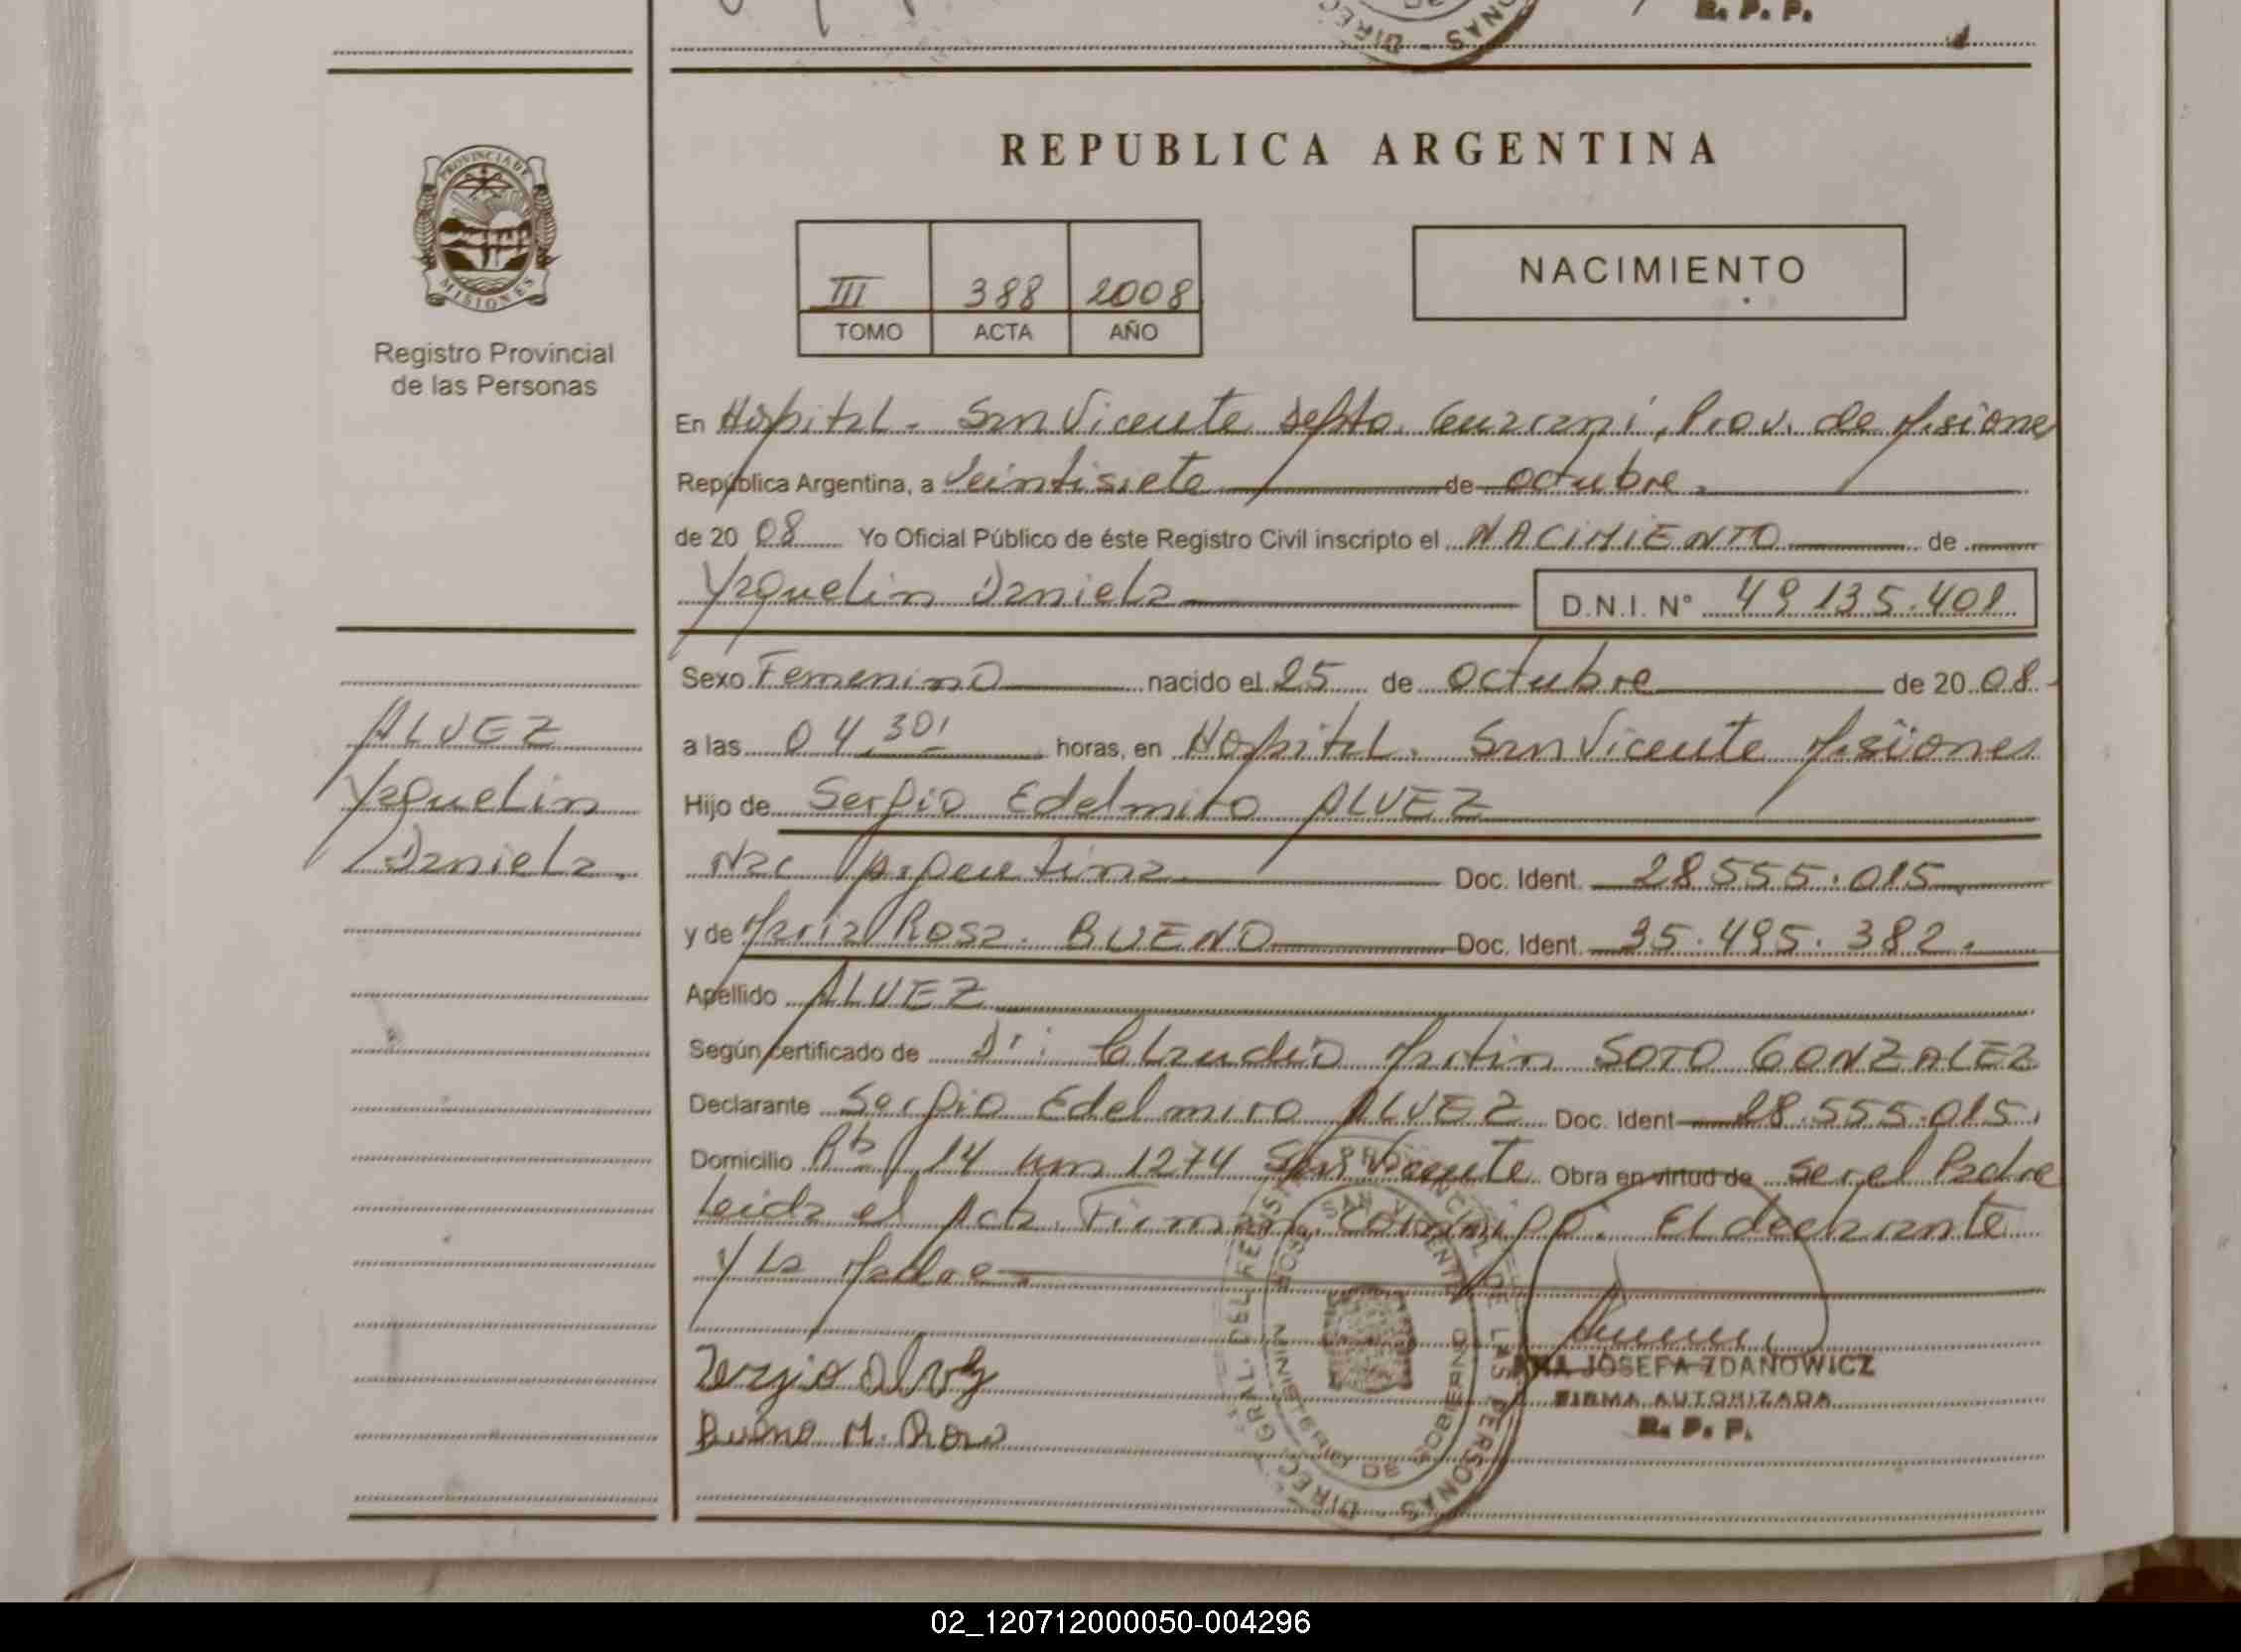 R. P. P.
DIREC
ONAS
REPUBLICA ARGENTINA
PROVINCIA DE
MISIONES
Registro Provincial
de las Personas
III 388 2008
TOMO ACTA AÑO
NACIMIENTO
En Hospital - San Vicente Depto. Guarani, Prov. de Misiones
República Argentina, a Veintisiete de octubre.
de 20 08 Yo Oficial Público de éste Registro Civil inscripto el NACIMIENTO de
Yaquelin Daniela D.N.I. N° 49.135.401
Sexo Femenino nacido el 25 de Octubre de 20 08.
ALVEZ
Yaquelin
Daniela.
a las 04,30' horas, en Hospital. San Vicente Misiones
Hijo de Sergio Edelmiro ALVEZ
Nac Argentina. Doc. Ident. 28.555.015
y de Maria Rosa. BUENO Doc. Ident. 35.495.382.
Apellido ALVEZ
Según certificado de Dr: Claudio Martin SOTO GONZALEZ
Declarante Sergio Edelmiro ALVEZ Doc. Ident 28.555.015.
Domicilio Rta 14 km 1274 San Vicente Obra en virtud de ser el Padre
Leida el Acta. Firman conmigo. El declarante
y La Madre.
Sergio Alvez
Bueno M. Rosa
ANA JOSEFA ZDANOWICZ
FIRMA AUTORIZADA
R. P. P.
DIREC. GRAL. DEL REGISTRO PROVINCIAL DE LAS PERSONAS
MINISTERIO DE GOBIERNO
SAN VICENTE
02_120712000050-004296